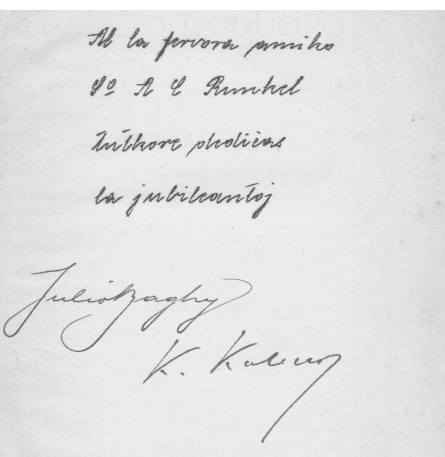 Al la fervora amiko
So A C Runkel
tutkore dediĉas
la jubileantoj
Julio Baghy
K. Kalocsay